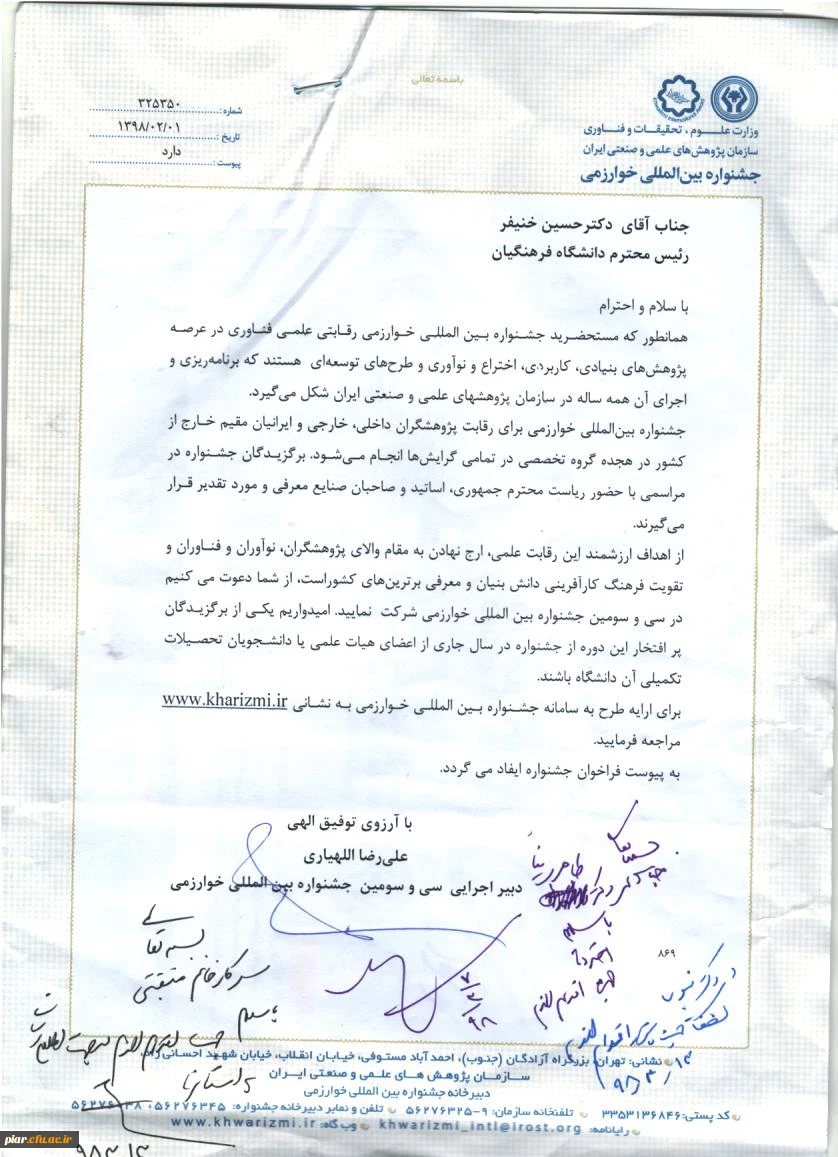 باسمه تعالی
وزارت علوم، تحقیقات و فناوری
سازمان پژوهش‌های علمی و صنعتی ایران
جشنواره بین‌المللی خوارزمی
شماره: ۳۲۵۳۵۰
تاریخ: ۱۳۹۸/۰۲/۰۱
پیوست: دارد
جناب آقای دکترحسین خنیفر
رئیس محترم دانشگاه فرهنگیان
با سلام و احترام
همانطور که مستحضرید جشنواره بین المللی خوارزمی رقابتی علمی فناوری در عرصه
پژوهش‌های بنیادی، کاربردی، اختراع و نوآوری و طرح‌های توسعه‌ای هستند که برنامه‌ریزی و
اجرای آن همه ساله در سازمان پژوهشهای علمی و صنعتی ایران شکل می‌گیرد.
جشنواره بین‌المللی خوارزمی برای رقابت پژوهشگران داخلی، خارجی و ایرانیان مقیم خارج از
کشور در هجده گروه تخصصی در تمامی گرایش‌ها انجام می‌شود. برگزیدگان جشنواره در
مراسمی با حضور ریاست محترم جمهوری، اساتید و صاحبان صنایع معرفی و مورد تقدیر قرار
می‌گیرند.
از اهداف ارزشمند این رقابت علمی، ارج نهادن به مقام والای پژوهشگران، نوآوران و فناوران و
تقویت فرهنگ کارآفرینی دانش بنیان و معرفی برترین‌های کشوراست، از شما دعوت می کنیم
در سی و سومین جشنواره بین المللی خوارزمی شرکت نمایید. امیدواریم یکی از برگزیدگان
پر افتخار این دوره از جشنواره در سال جاری از اعضای هیات علمی یا دانشجویان تحصیلات
تکمیلی آن دانشگاه باشند.
برای ارایه طرح به سامانه جشنواره بین المللی خوارزمی به نشانی www.kharizmi.ir
مراجعه فرمایید.
به پیوست فراخوان جشنواره ایفاد می گردد.
با آرزوی توفیق الهی
علی‌رضا اللهیاری
دبیر اجرایی سی و سومین جشنواره بین المللی خوارزمی
۸۶۹
نشانی: تهران، بزرگراه آزادگان (جنوب)، احمد آباد مستوفی، خیابان انقلاب، خیابان شهید احسانی راد،
سازمان پژوهش های علمی و صنعتی ایران
دبیرخانه جشنواره بین المللی خوارزمی
کد پستی: ۳۳۵۳۱۳۶۸۴۶ تلفنخانه سازمان: ۹-۵۶۲۷۶۳۲۵ تلفن و نمابر دبیرخانه جشنواره: ۵۶۲۷۶۳۴۵،
رایانامه: khwarizmi_intl@irost.org وب گاه: www.khwarizmi.ir
piar.cfu.ac.ir